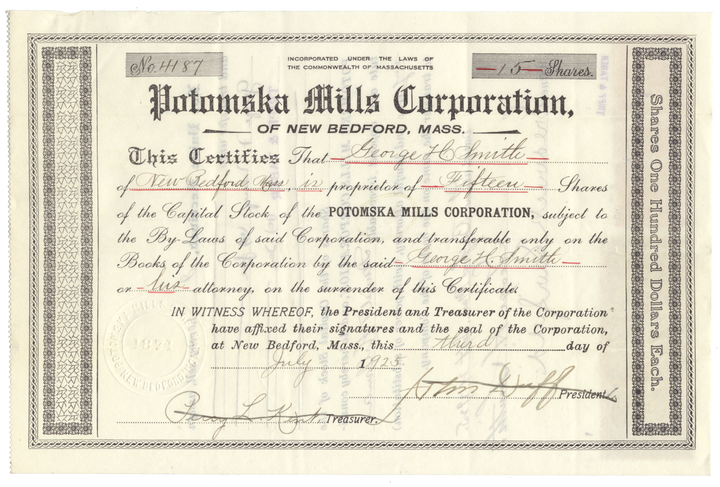 No. 4187
INCORPORATED UNDER THE LAWS OF
THE COMMONWEALTH OF MASSACHUSETTS
15 Shares.
Potomska Mills Corporation,
OF NEW BEDFORD, MASS.
This Certifies That George H. Smith
of New Bedford, Mass., is proprietor of Fifteen Shares
of the Capital Stock of the POTOMSKA MILLS CORPORATION, subject to
the By-Laws of said Corporation, and transferable only on the
Books of the Corporation by the said George H. Smith
or his attorney, on the surrender of this Certificate.
IN WITNESS WHEREOF, the President and Treasurer of the Corporation
have affixed their signatures and the seal of the Corporation,
at New Bedford, Mass., this third day of
July 1925
John Duff President
Percy L. Kent, Treasurer.
Shares One Hundred Dollars Each.
POTOMSKA MILLS
1871